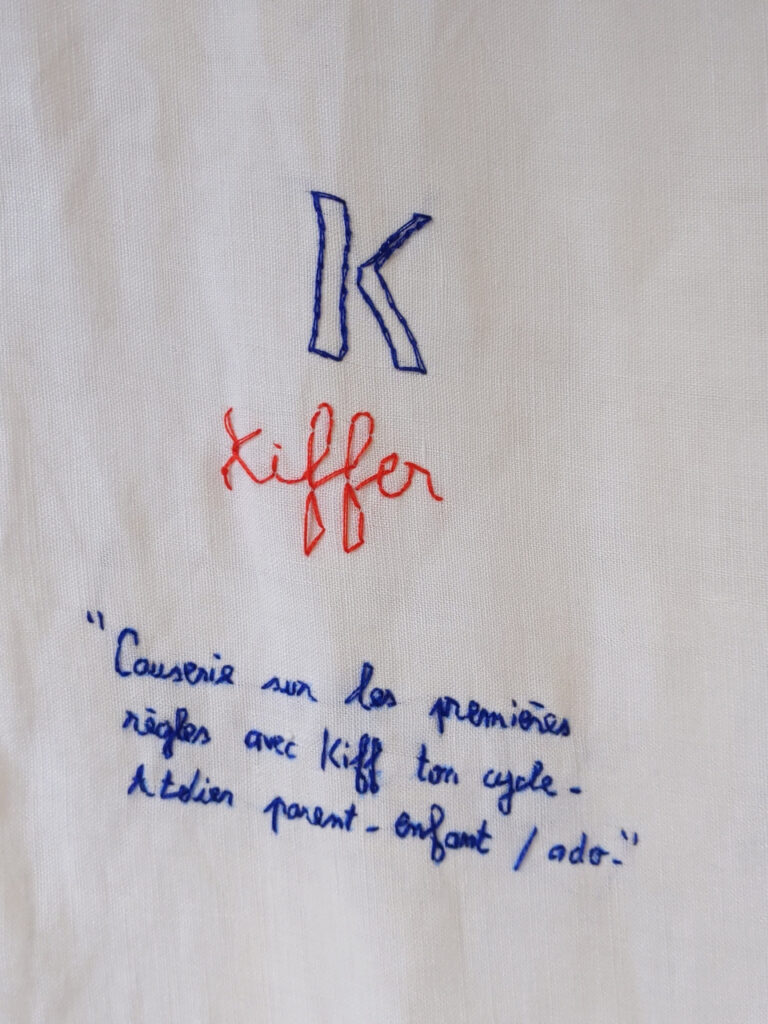 K
Kiffer
"Causerie sur les premières
règles avec Kiff ton cycle-
Atelier parent-enfant / ado-"